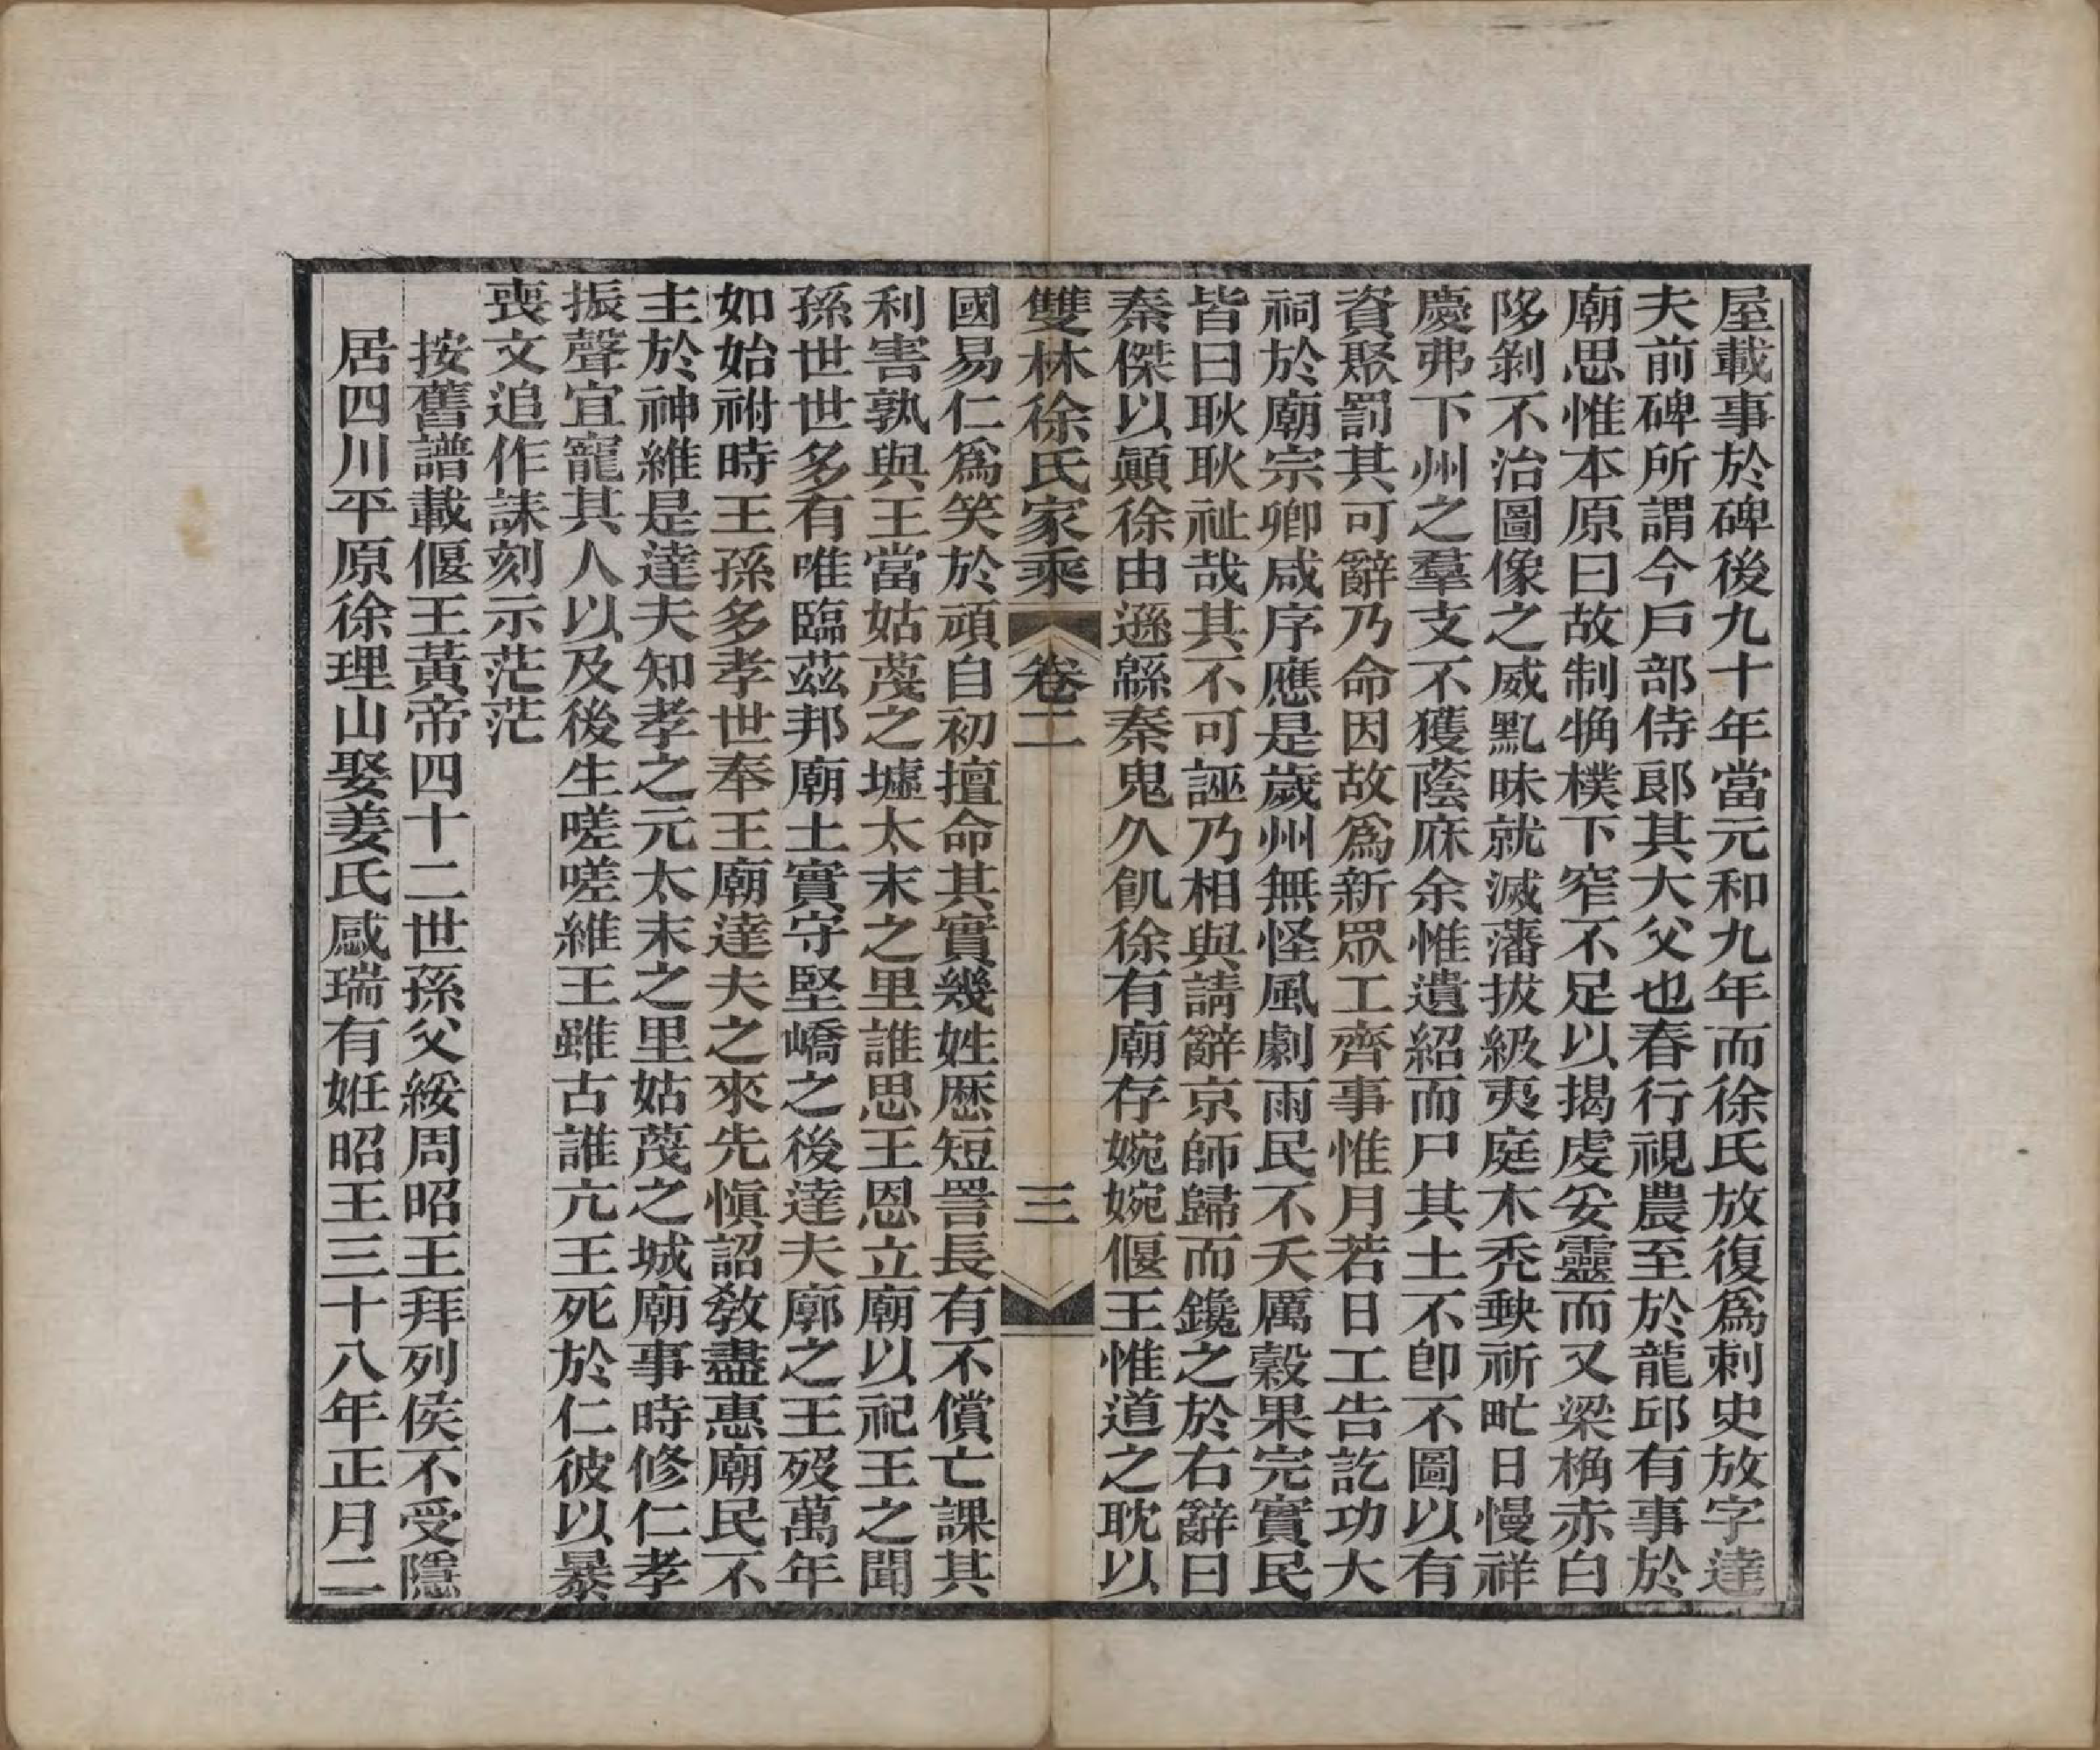 屋載事於碑後九十年當元和九年而徐氏放復爲刺史放字達
夫前碑所謂今戶部侍郞其大父也春行視農至於龍邱有事於
廟思惟本原曰故制觕樸下窄不足以揭虔妥靈而又梁桷赤白
陊剝不治圖像之威黓昧就滅藩拔級夷庭木禿缺祈甿日慢祥
慶弗下州之羣支不獲蔭庥余惟遺紹而尸其土不卽不圖以有
資聚罰其可辭乃命因故爲新眾工齊事惟月若日工告訖功大
祠於廟宗卿咸序應是歲州無怪風劇雨民不夭厲穀果完實民
皆曰耿耿祉哉其不可誣乃相與請辭京師歸而鑱之於右辭曰
秦傑以顚徐由遜緜秦鬼久飢徐有廟存婉婉偃王惟道之耽以
雙林徐氏家乘 卷二 三
國易仁爲笑於頑自初擅命其實幾姓歷短詈長有不償亡課其
利害孰與王當姑蔑之墟太末之里誰思王恩立廟以祀王之聞
孫世世多有唯臨茲邦廟土實守堅嶠之後達夫廓之王歿萬年
如始祔時王孫多孝世奉王廟達夫之來先愼詔敎盡惠廟民不
主於神維是達夫知孝之元太末之里姑蔑之城廟事時修仁孝
振聲宜寵其人以及後生嗟嗟維王雖古誰亢王死於仁彼以暴
喪文追作誄刻示茫茫
按舊譜載偃王黃帝四十二世孫父綏周昭王拜列侯不受隱
居四川平原徐理山娶姜氏感瑞有姙昭王三十八年正月二